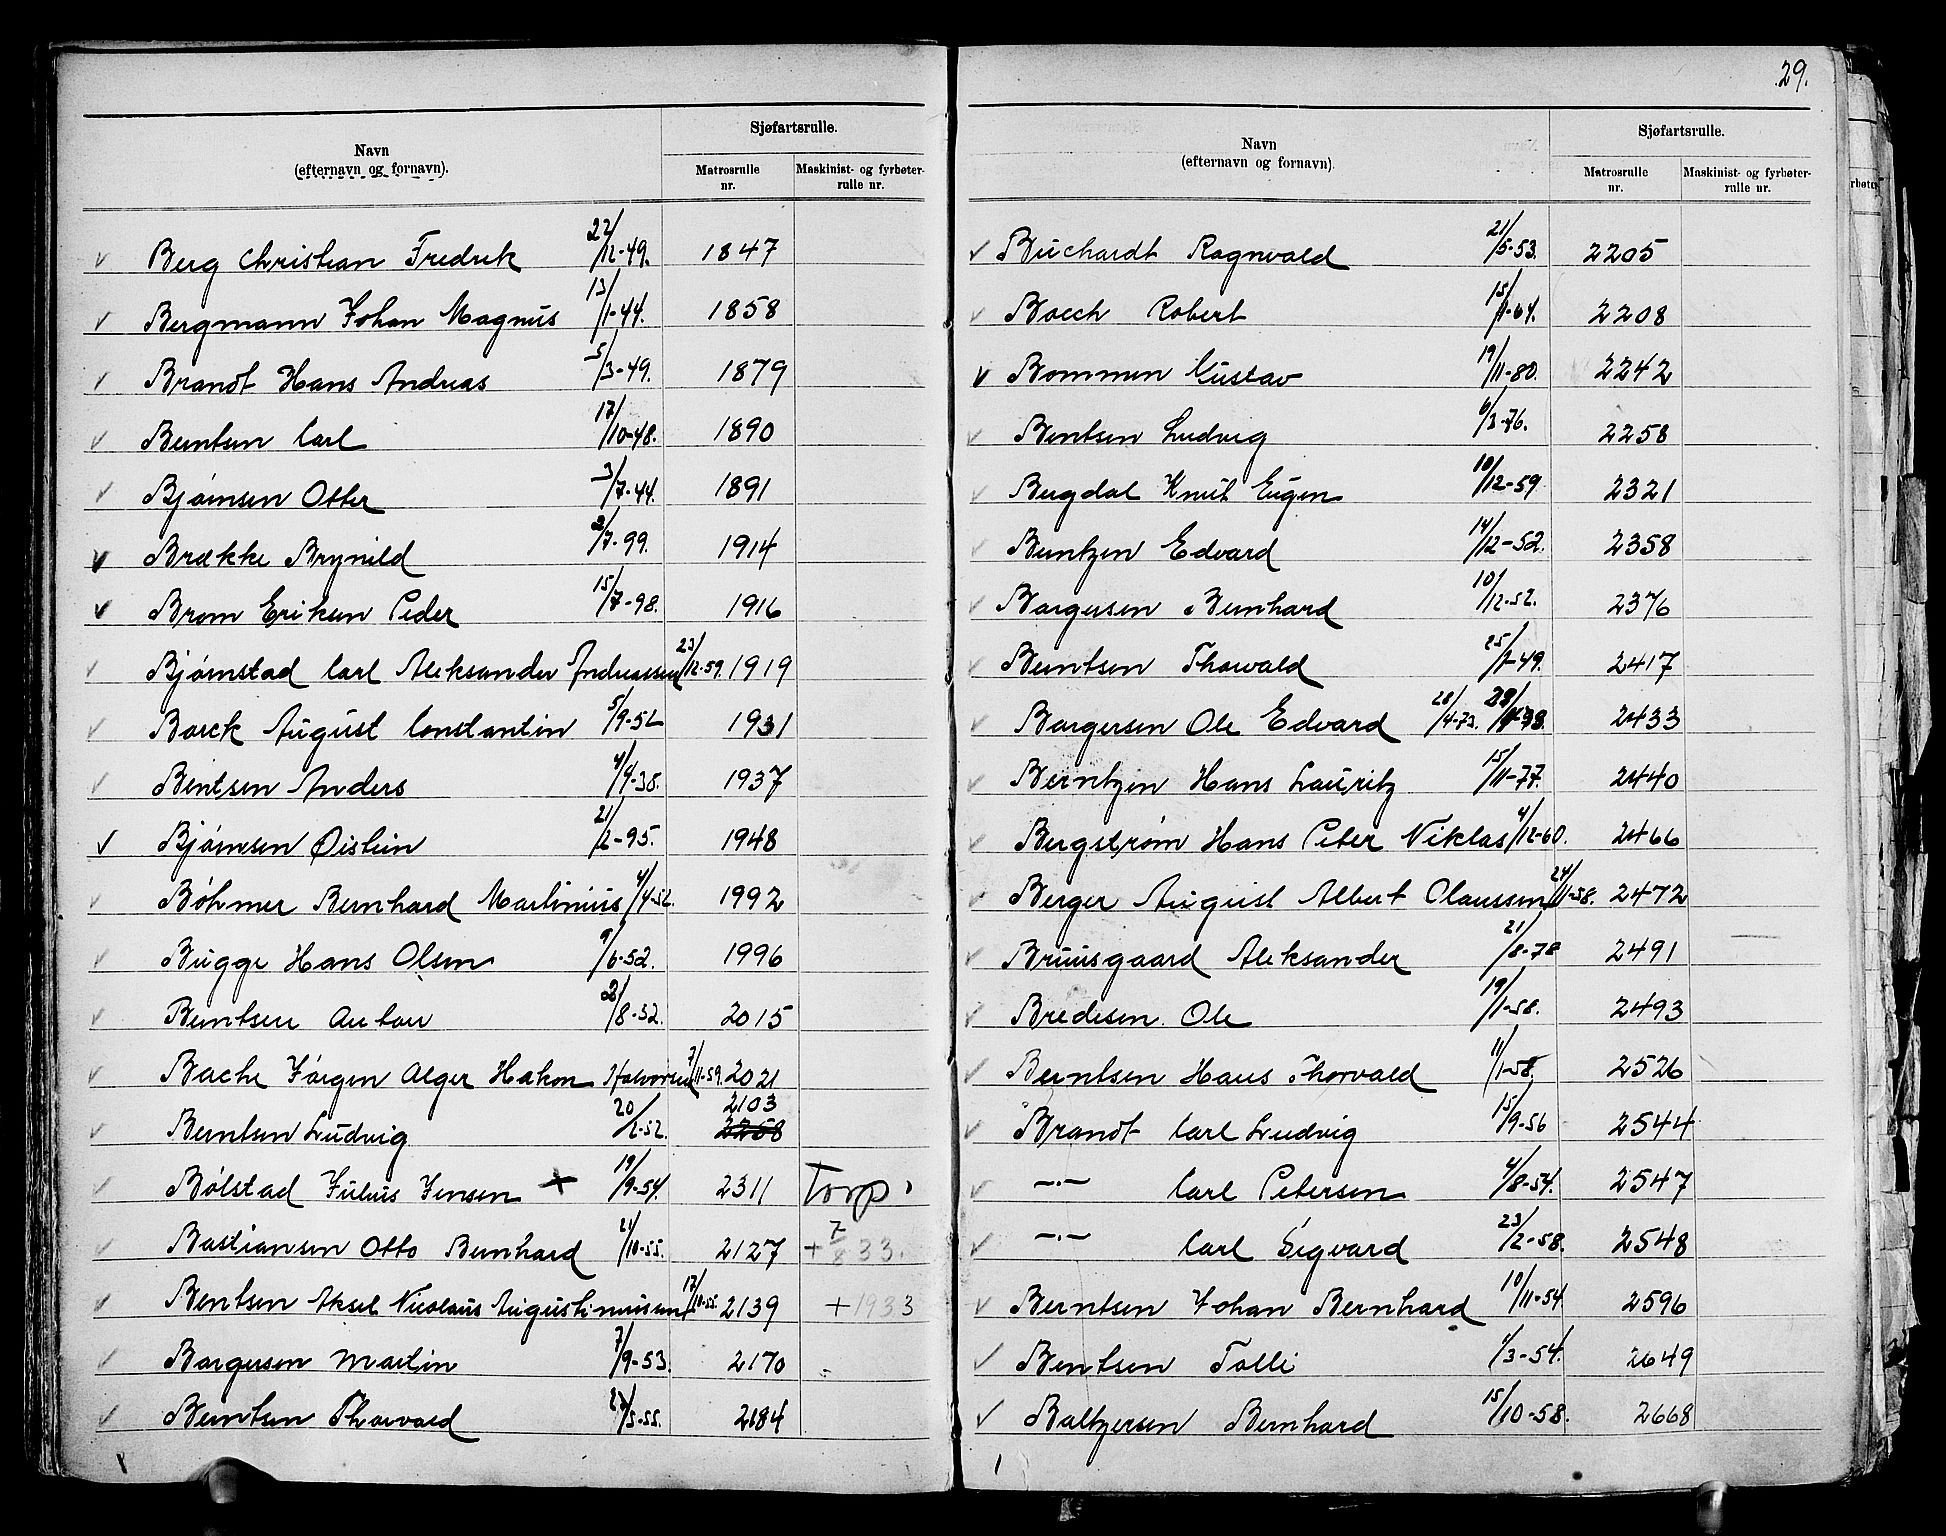 Navn
(efternavn og fornavn).
Sjøfartsrulle.
Matrosrulle nr.
Maskinist- og fyrbøter-rulle nr.
Berg Christian Fredrik 22/12-49. 1847
Bergmann Johan Magnus 13/1-44. 1858
Brandt Hans Andreas 5/3-49. 1879
Berntsen Carl 17/10-48. 1890
Bjørnsen Otter 3/7-44. 1891
Brække Brynild 2/7-99. 1914
Brom Eriksen Peder 15/7-98. 1916
Bjørnstad Carl Aleksander Andreassen 23/12-59. 1919
Borck August Constantin 5/9-52 1931
Bentsen Anders 4/9-38. 1937
Bjørnsen Øistein 21/2-95. 1948
Bøhmer Bernhard Martinius 4/4-52. 1992
Bugge Hans Olsen 9/6-52. 1996
Berntsen Anton /8-52. 2015
Bache Jørgen Alger Hakon Halvorsen 7/11-59. 2021
2103
Berntsen Ludvig 20/2-52. 2268
Bølstad Julius Jensen × 19/9-54. 2311 Torp.
Bastiansen Otto Bernhard 21/10-55. 2127 + 7/8 33.
Bentsen Aksel Nicolaus Augustinussen 17/10-55. 2139 + 1933
Borgersen Martin 7/9-53. 2170
Berntsen Thorvald /5-55. 2184
29.
Navn
(efternavn og fornavn)
Sjøfartsrulle.
Matrosrulle nr.
Maskinist- og fyrbøter-rulle nr.
Buchardt Ragnvald 21/5-53. 2205
Boech Robert 15/1-64. 2208
Bommen Gustav 19/11-80. 2242
Bentsen Ludvig 6/3-76. 2258
Bergdal Knut Eugen 10/12-59 2321
Berntzen Edvard 14/12-52. 2358
Borgersen Bernhard 10/12-52. 2376
Berntsen Thorvald 25/1-49. 2417
Borgersen Ole Edvard 28/4-73. 2433
Berntzen Hans Lauritz 15/11-77. 2440
Bergstrøm Hans Peter Niklas 4/12-60. 2466
Berger August Albert Olaussen 24/11-58. 2472
Bruusgaard Aleksander 21/8-78 2491
Bredesen Ole 19/1-58. 2493
Berntsen Hans Thorvald 11/1-58. 2526
Brandt Carl Ludvig 15/9-56 2544
—·— Carl Petersen 4/8-54. 2547
—·— Carl Sigvard 23/2-58. 2548
Berntsen Johan Bernhard 10/11-54 2596
Bentsen Tolli 1/3-54. 2649
Baltzersen Bernhard 15/10-58. 2668